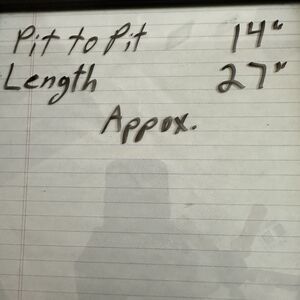 Pit to Pit 14"
Length 27"
Appox.